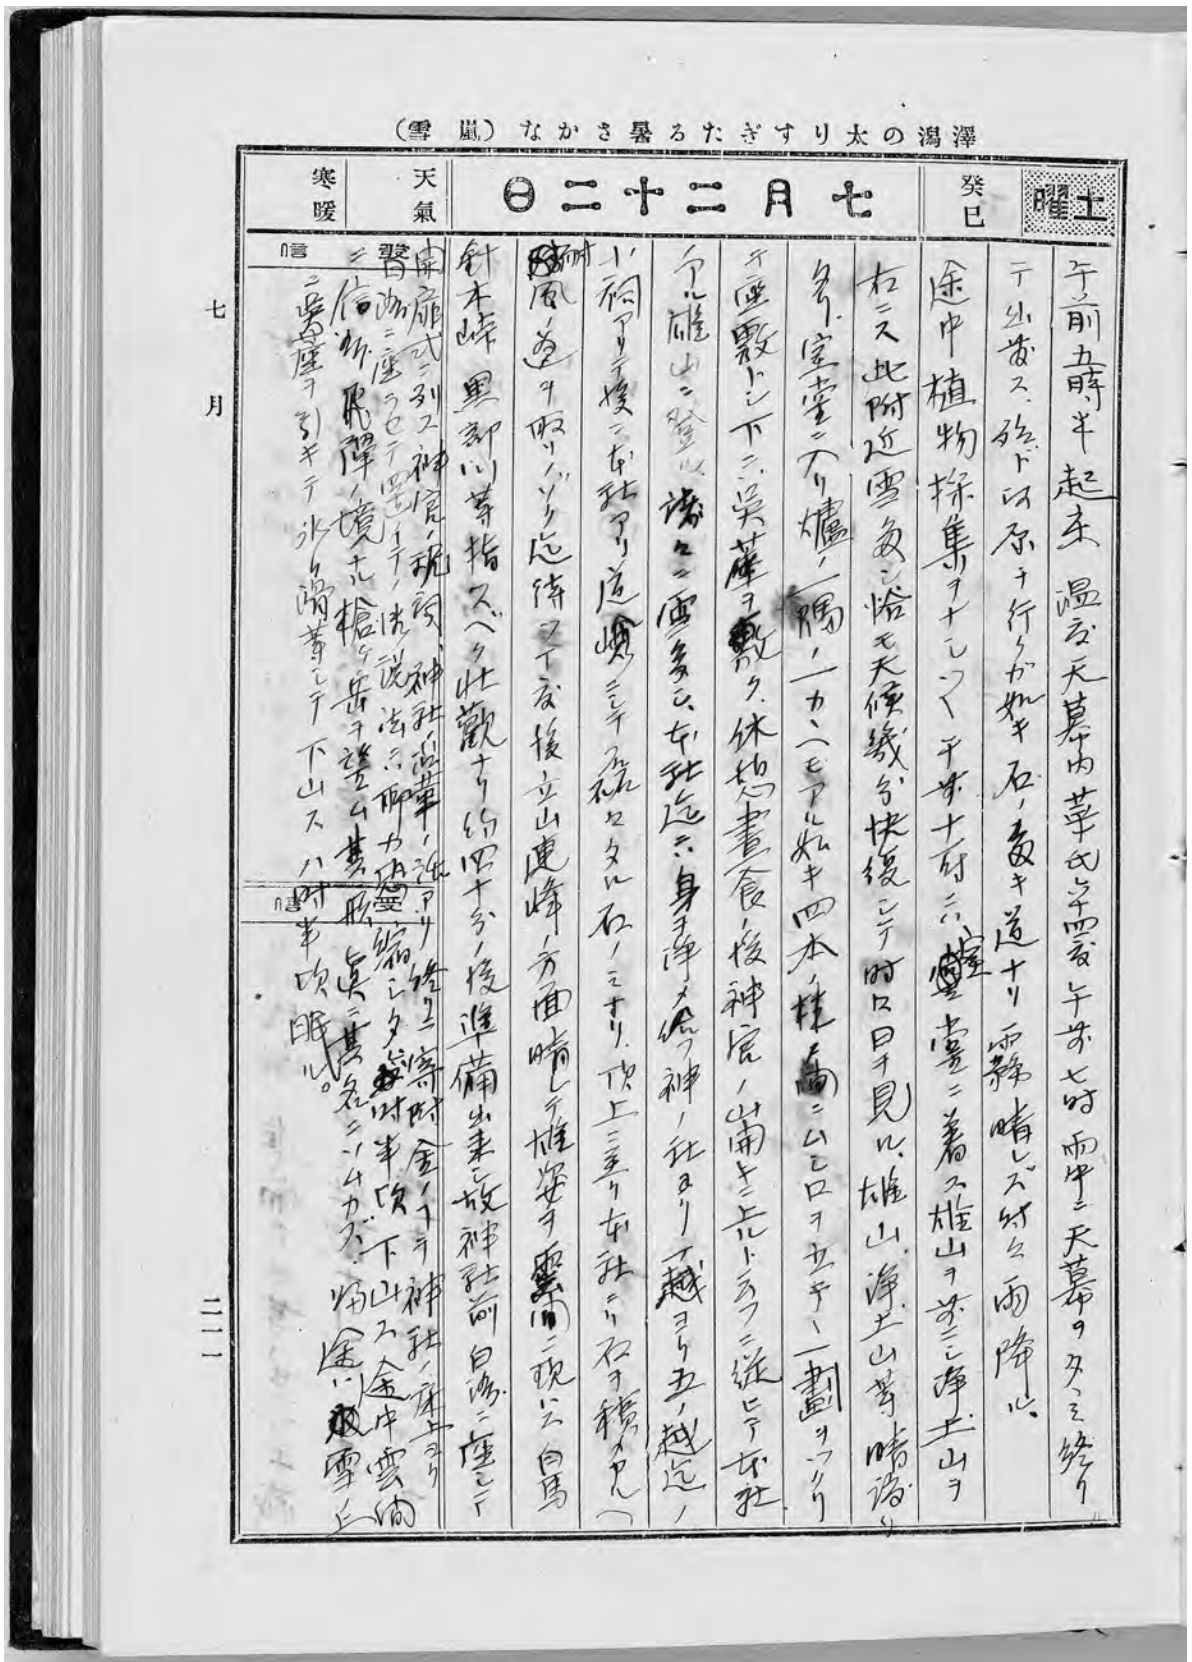 澤瀉の太りすぎたる暑さかな（嵐雪）
土曜
癸巳
七月二十二日
天氣
寒暖
午前五時半起床 温度天幕内華氏五十四度午前七時雨中ニ天幕ノタヽミ終リ
テ出発ス、殆ド河原ヲ行クガ如キ石ノ多キ道ナリ霧晴レズ時々雨降ル、
途中植物採集ヲナシツヽ午前十時ニハ室堂ニ着ス雄山ヲ前ニシ浄土山ヲ
右ニス此附近雪多シ恰モ天候幾分快復シテ時々日ヲ見ル、雄山、浄土山等晴渡リ
タリ、室堂ニ入リ爐ノ一隅ノ一カヘモアル如キ四本ノ柱ノ間ニムシロヲ立テ一劃ヲツクリ
テ座敷トシ下ニ呉蓙ヲ敷ク、休憩晝食ノ後神官ノ山開キニ上ルト云フニ従ヒテ本社
ノアル雄山ニ登ル、諸々ニ雪多シ、本社迄ニハ身ヲ浄メ給フ神ノ社ヨリ一ノ越ヨリ五ノ越迄ノ
小祠アリテ後ニ本社アリ道嶮ニシテ磊々タル石ノミナリ、頂上ニ至リ本社ニハ石ヲ積メカヘ
風ノ道ヲ取リノゾク迄待ツ 後立山連峰ノ方面晴レテ雄姿ヲ雲間ニ現ハス白馬
針木峠 黒部川等指スベク壮觀ナリ約四十分ノ後準備出来シ故神社前白洲ニ座シテ
開扉式ニ列ス神官ノ祝詞、神社ノ沿革ノ話アリ終リニ寄附金ノ 神社ノ床上ヨリ
シタ 時半頃下山ス途中雲間
ニ信州飛騨ノ境ナル槍ケ岳ヲ望ム其形眞ニ其名ニソムカズ、帰途ハ 雪ノ上
ニ茣座ヲ引キテ氷ク滑葦シテ下山ス 八時半頃眠ル。
七月
二一一